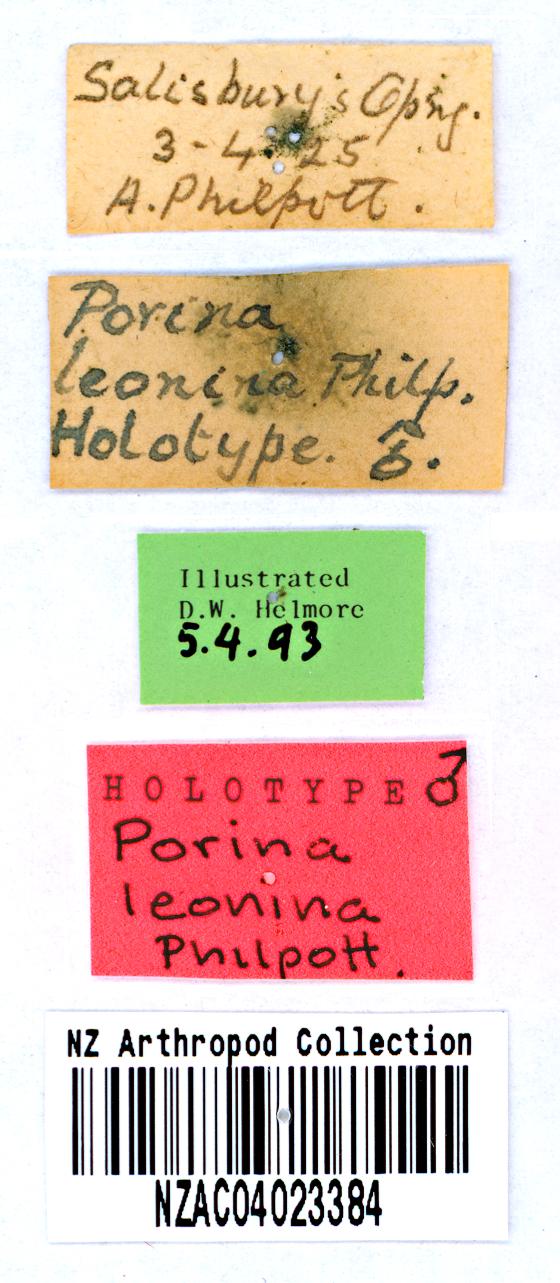 Salisbury's Opng.
3-4-25
A. Philpott.
Porina
leonina Philp.
Holotype. ♂.
Illustrated
D.W. Helmore
5.4.93
HOLOTYPE ♂
Porina
leonina
Philpott.
NZ Arthropod Collection
NZAC04023384